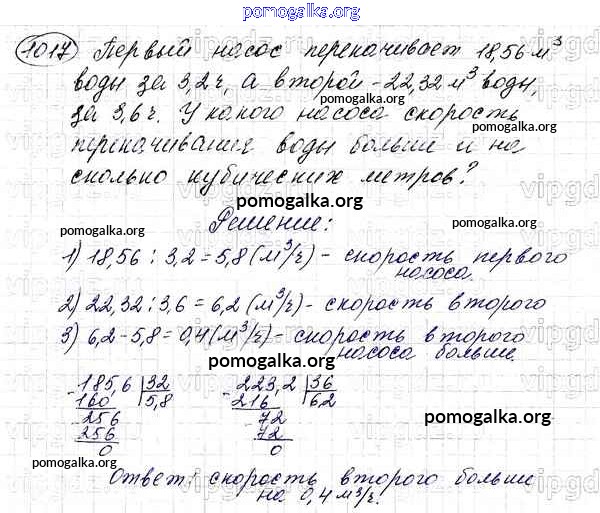 pomogalka.org
1017 Первый насос перекачивает 18,56 м³
воды за 3,2 ч, а второй - 22,32 м³ воды,
за 3,6 ч. У какого насоса скорость
перекачивания воды больше и на
сколько кубических метров?
Решение:
1) 18,56 : 3,2 = 5,8 (м³/ч) - скорость первого
насоса.
2) 22,32 : 3,6 = 6,2 (м³/ч) - скорость второго
3) 6,2 - 5,8 = 0,4 (м³/ч) - скорость второго
насоса больше.
pomogalka.org
185,6 | 32 223,2 | 36
160 5,8 216 6,2
256 72
256 72
0 0
Ответ: скорость второго больше
на 0,4 м³/ч.
pomogalka.org